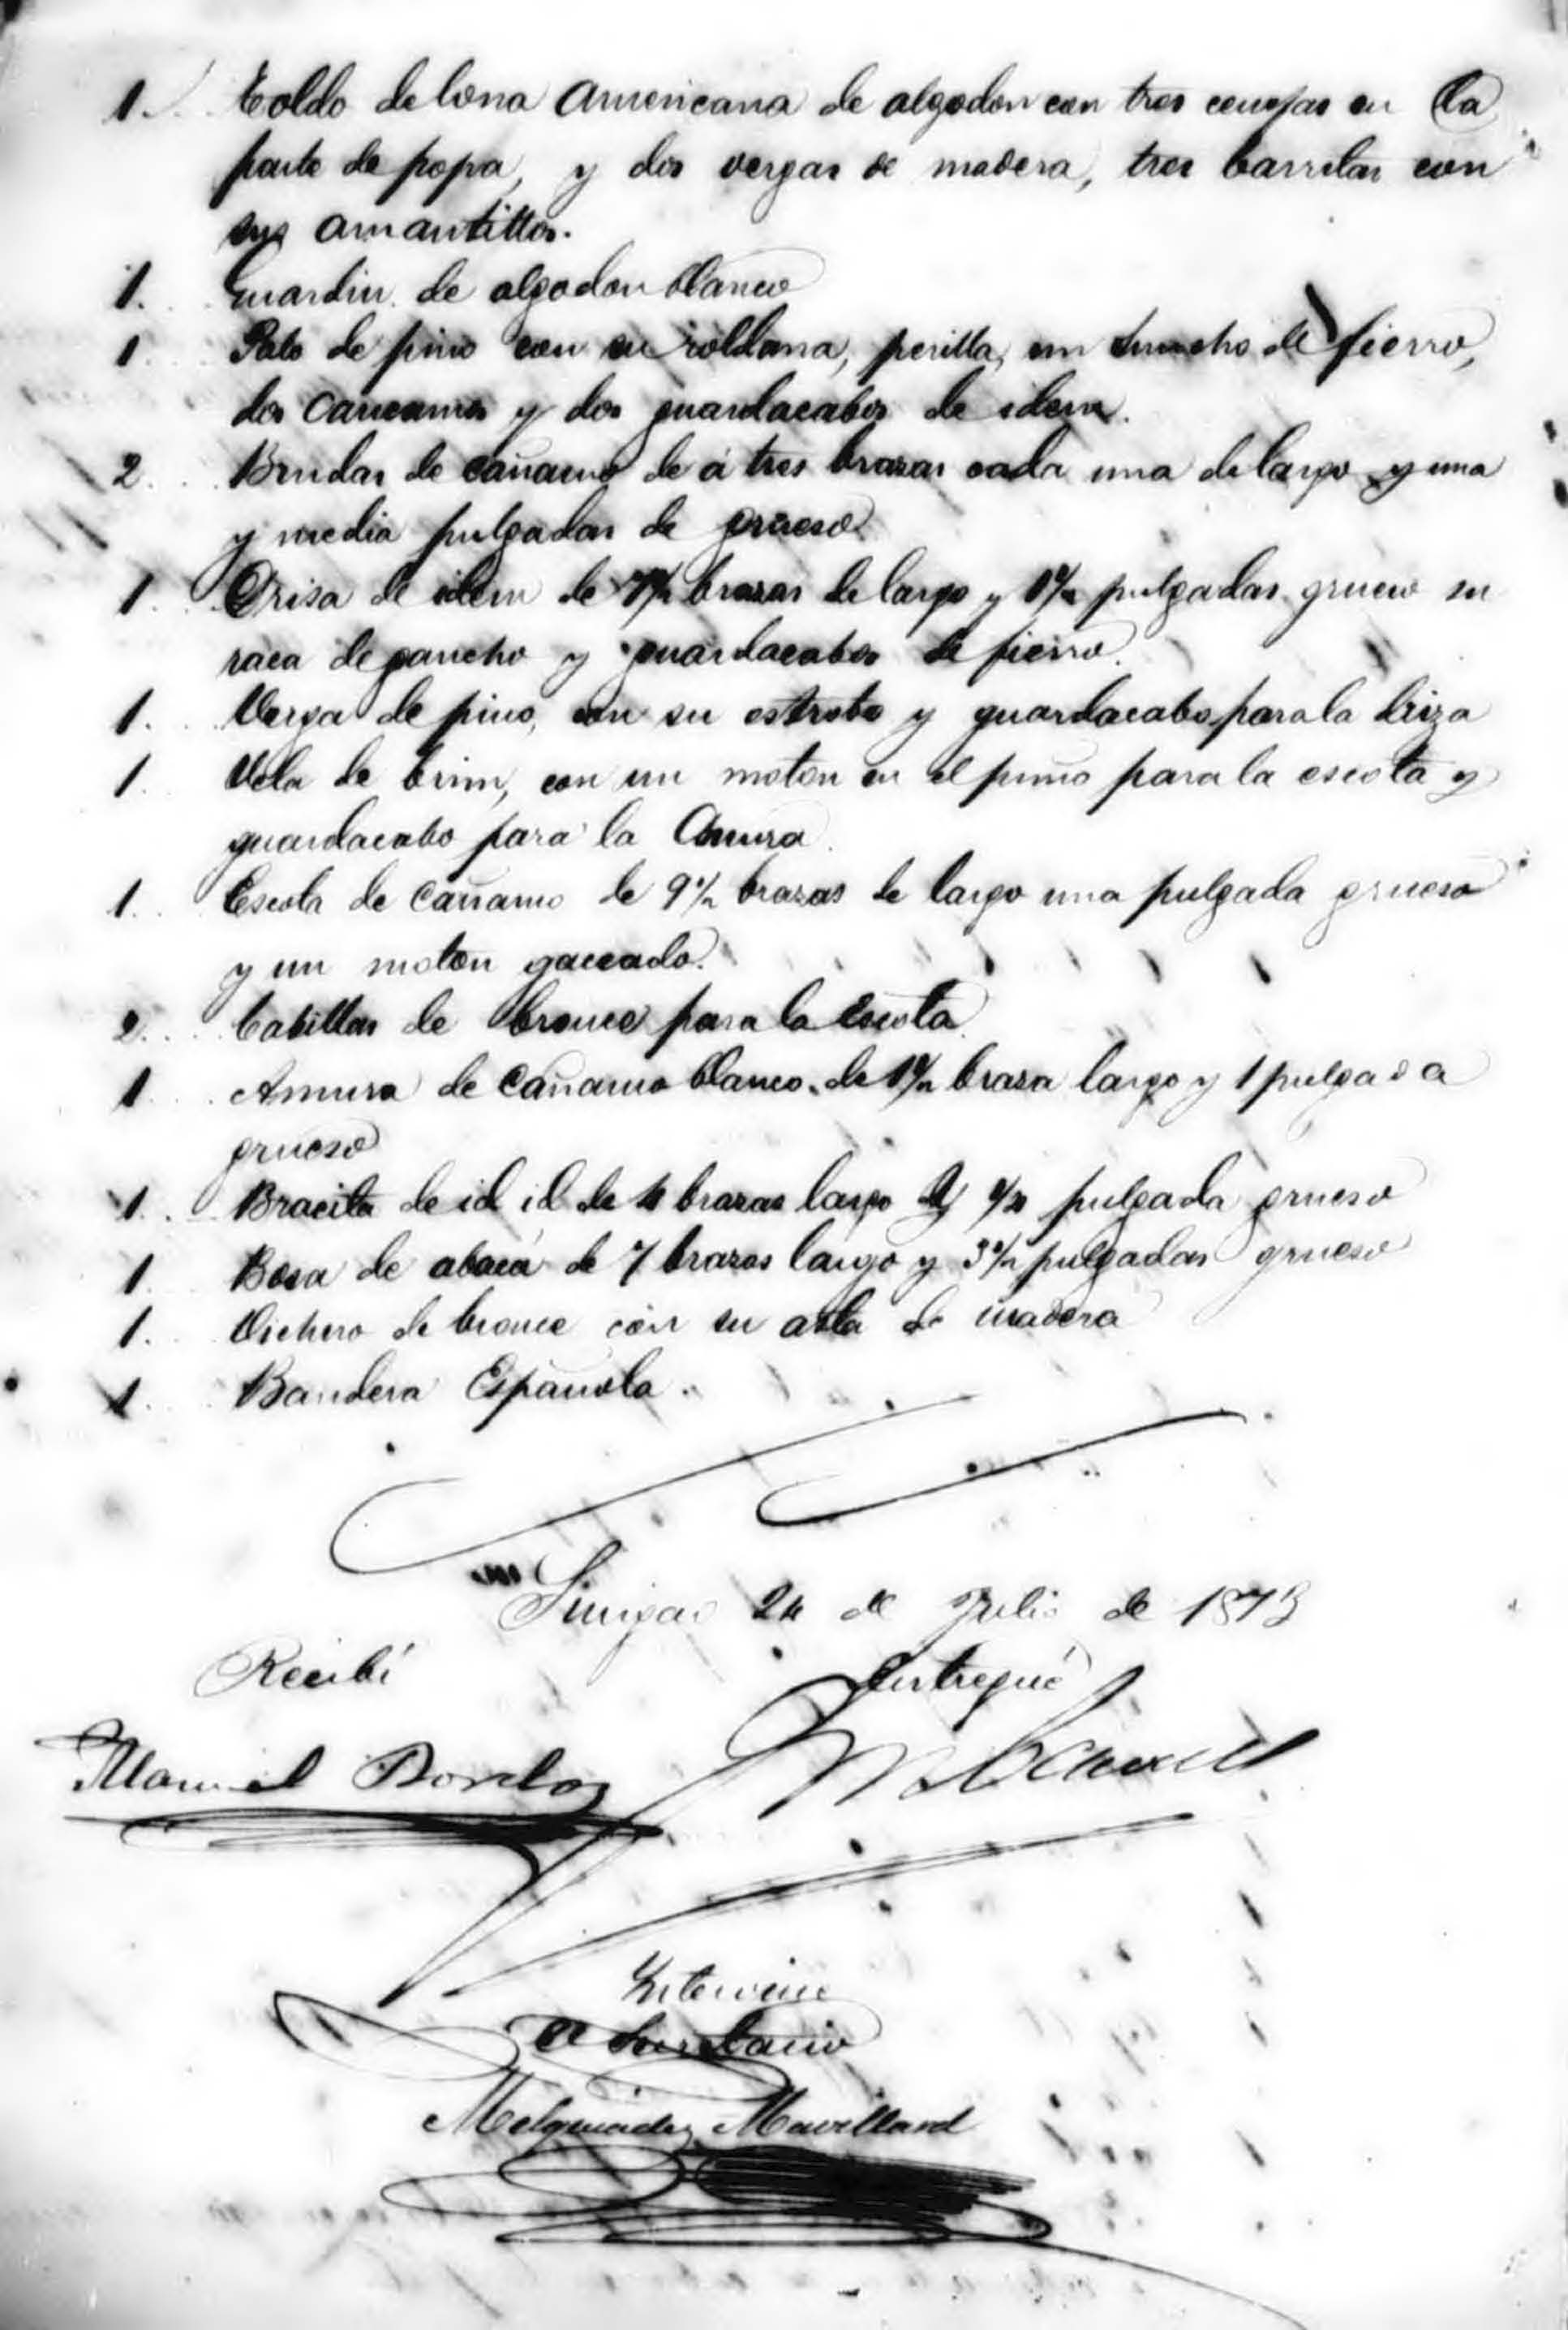 1. Toldo de lona Americana de algodon con tres conejas en la
parte de popa, y dos vergas de madera, tres barretas con
sus amantillos.
1. Guardin de algodon blanco
1 Palo de pino con su roldana, perilla, un suncho de fierro,
dos cancamos y dos guardacabos de idem.
2. Brudas de cañamo de á tres brazas cada una de largo y una
y media pulgadas de grueso.
1. Drisa de idem de 7½ brazas de largo y 1½ pulgadas grueso su
raca de gancho y guardacabos de fierro.
1. Verga de pino, con su estrobo y guardacabo para la driza
1. Vela de brin, con un moton en el puño para la escota y
guardacabo para la Amura.
1. Escota de cañamo de 9½ brazas de largo una pulgada grueso
y un moton gaceado.
2. Cabillas de bronce para la Escota.
1. Amura de Cañamo blanco de 1½ braza largo y 1 pulgada
grueso
1. Bracita de id id de 4 brazas largo y ½ pulgada grueso
1. Bosa de abacá de 7 brazas largo y 3½ pulgadas grueso
1. Vichero de bronce con su asta de madera
1. Bandera Española.
24 de Julio de 1873
Recibí Entregué
Manuel
Intervine
El Secretario
Melquiades Mavillard